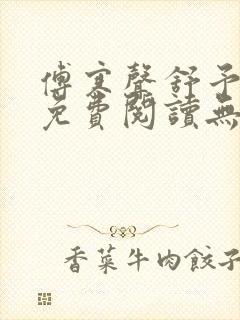 傅寒聲舒予
免費閱讀無
香菜牛肉餃子